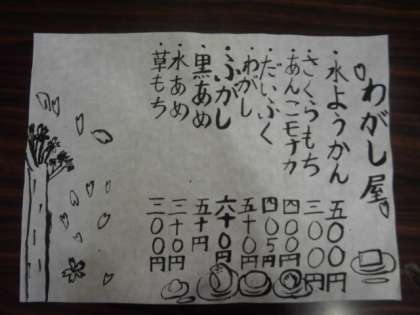 わがし屋
・水ようかん 五〇〇円
・さくらもち 三〇〇円
・あんこモナカ 四〇〇円
・だいふく 四〇五円
・わがし 五十〇円
・ふがし 六十〇円
・黒あめ 五十円
・水あめ 三十〇円
・草もち 三〇〇円